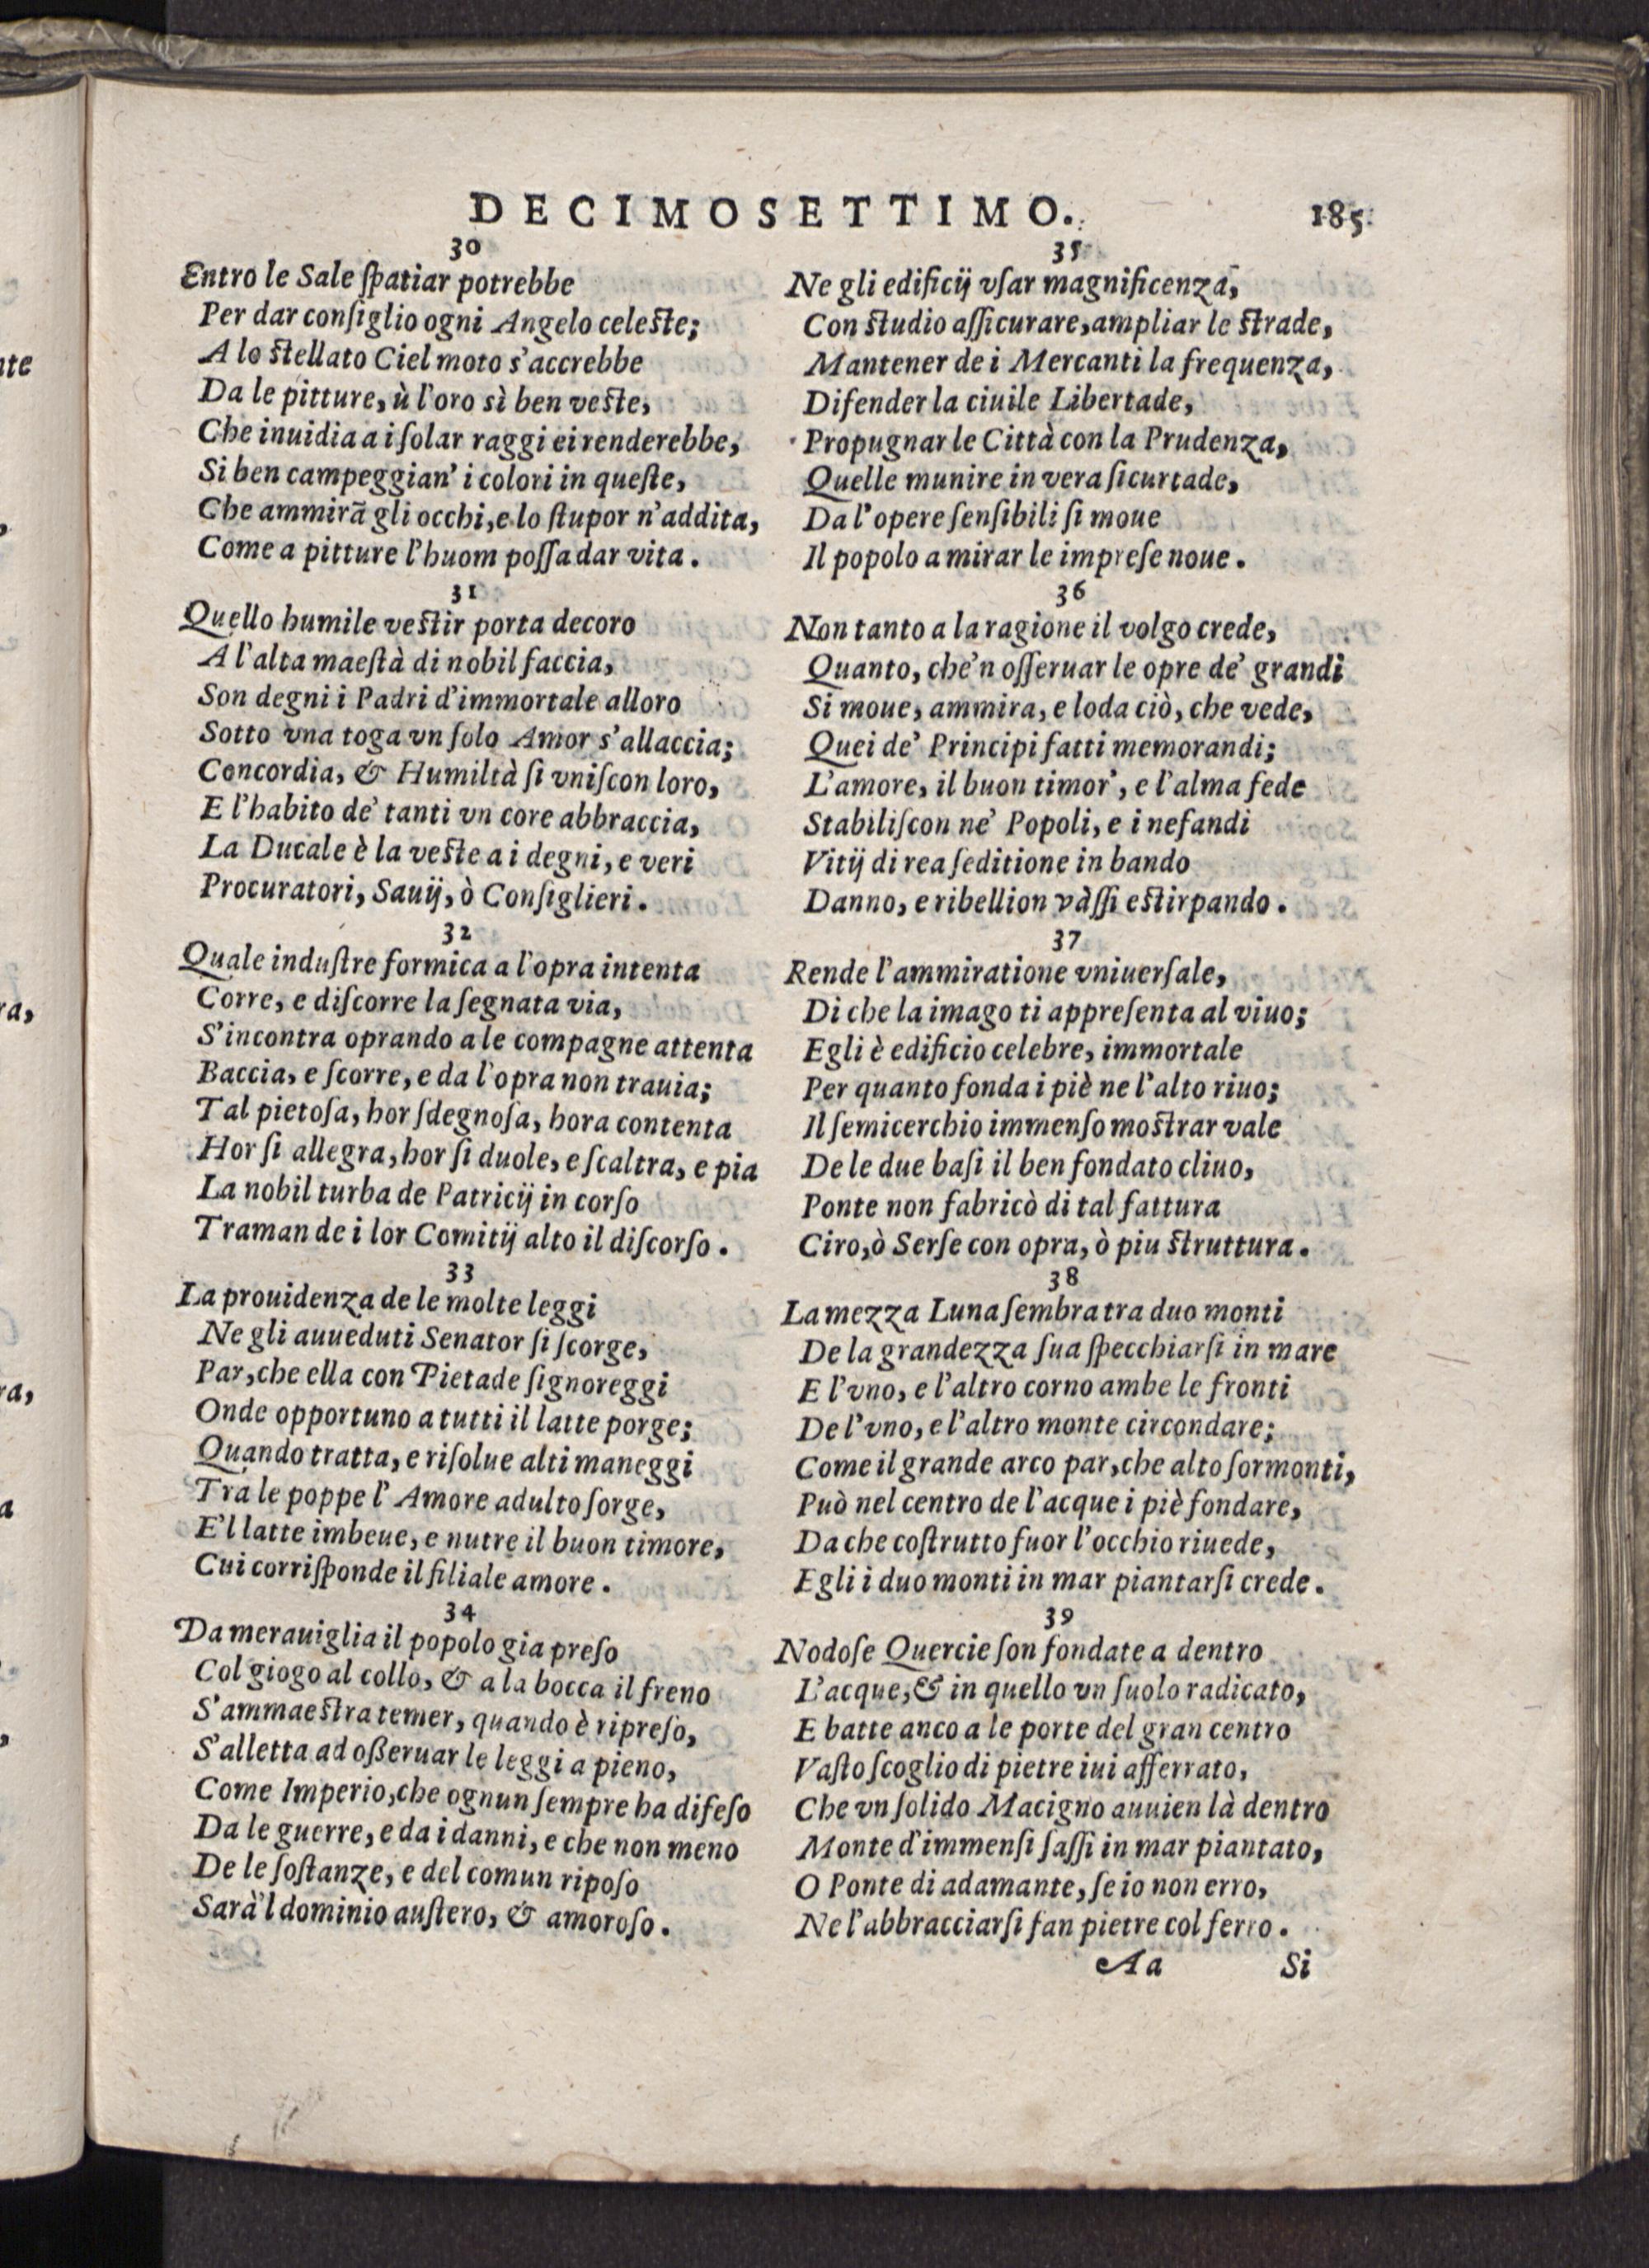 DECIMOSETTIMO. 185
30
Entro le Sale ſpatiar potrebbe
Per dar conſiglio ogni Angelo celeſte;
A lo ſtellato Ciel moto s'accrebbe
Da le pitture, ù l'oro sì ben veſte,
Che inuidia a i ſolar raggi ei renderebbe,
Si ben campeggian' i colori in queſte,
Che ammirã gli occhi, e lo ſtupor n'addita,
Come a pitture l'huom poſſa dar vita.
31
Quello humile veſtir porta decoro
A l'alta maeſtà di nobil faccia,
Son degni i Padri d'immortale alloro
Sotto vna toga vn ſolo Amor s'allaccia;
Concordia, & Humiltà ſi vniſcon loro,
E l'habito de' tanti vn core abbraccia,
La Ducale è la veſte a i degni, e veri
Procuratori, Sauij, ò Conſiglieri.
32
Quale induſtre formica a l'opra intenta
Corre, e diſcorre la ſegnata via,
S'incontra oprando a le compagne attenta
Baccia, e ſcorre, e da l'opra non trauia;
Tal pietoſa, hor ſdegnoſa, hora contenta
Hor ſi allegra, hor ſi duole, e ſcaltra, e pia
La nobil turba de Patricij in corſo
Traman de i lor Comitij alto il diſcorſo.
33
La prouidenza de le molte leggi
Ne gli auueduti Senator ſi ſcorge,
Par, che ella con Pietade ſignoreggi
Onde opportuno a tutti il latte porge;
Quando tratta, e riſolue alti maneggi
Tra le poppe l'Amore adulto ſorge,
E'l latte imbeue, e nutre il buon timore,
Cui corriſponde il filiale amore.
34
Da merauiglia il popolo gia preſo
Col giogo al collo, & a la bocca il freno
S'ammaeſtra temer, quando è ripreſo,
S'alletta ad oßeruar le leggi a pieno,
Come Imperio, che ognun ſempre ha difeſo
Da le guerre, e da i danni, e che non meno
De le ſoſtanze, e del comun ripoſo
Sarà'l dominio auſtero, & amoroſo.
35
Ne gli edificij vſar magnificenza,
Con ſtudio aſſicurare, ampliar le ſtrade,
Mantener de i Mercanti la frequenza,
Difender la ciuile Libertade,
Propugnar le Città con la Prudenza,
Quelle munire in vera ſicurtade,
Da l'opere ſenſibili ſi moue
Il popolo a mirar le impreſe noue.
36
Non tanto a la ragione il volgo crede,
Quanto, che'n oſſeruar le opre de' grandi
Si moue, ammira, e loda ciò, che vede,
Quei de' Principi fatti memorandi;
L'amore, il buon timor', e l'alma fede
Stabiliſcon ne' Popoli, e i nefandi
Vitij di rea ſeditione in bando
Danno, e ribellion vàſſi eſtirpando.
37
Rende l'ammiratione vniuerſale,
Di che la imago ti appreſenta al viuo;
Egli è edificio celebre, immortale
Per quanto fonda i piè ne l'alto riuo;
Il ſemicerchio immenſo moſtrar vale
De le due baſi il ben fondato cliuo,
Ponte non fabricò di tal fattura
Ciro, ò Serſe con opra, ò piu ſtruttura.
38
La mezza Luna ſembra tra duo monti
De la grandezza ſua ſpecchiarſi in mare
E l'vno, e l'altro corno ambe le fronti
De l'vno, e l'altro monte circondare;
Come il grande arco par, che alto ſormonti,
Può nel centro de l'acque i piè fondare,
Da che coſtrutto fuor l'occhio riuede,
Egli i duo monti in mar piantarſi crede.
39
Nodoſe Quercie ſon fondate a dentro
L'acque, & in quello vn ſuolo radicato,
E batte anco a le porte del gran centro
Vaſto ſcoglio di pietre iui afferrato,
Che vn ſolido Macigno auuien là dentro
Monte d'immenſi ſaſſi in mar piantato,
O Ponte di adamante, ſe io non erro,
Ne l'abbracciarſi fan pietre col ferro.
Aa Si